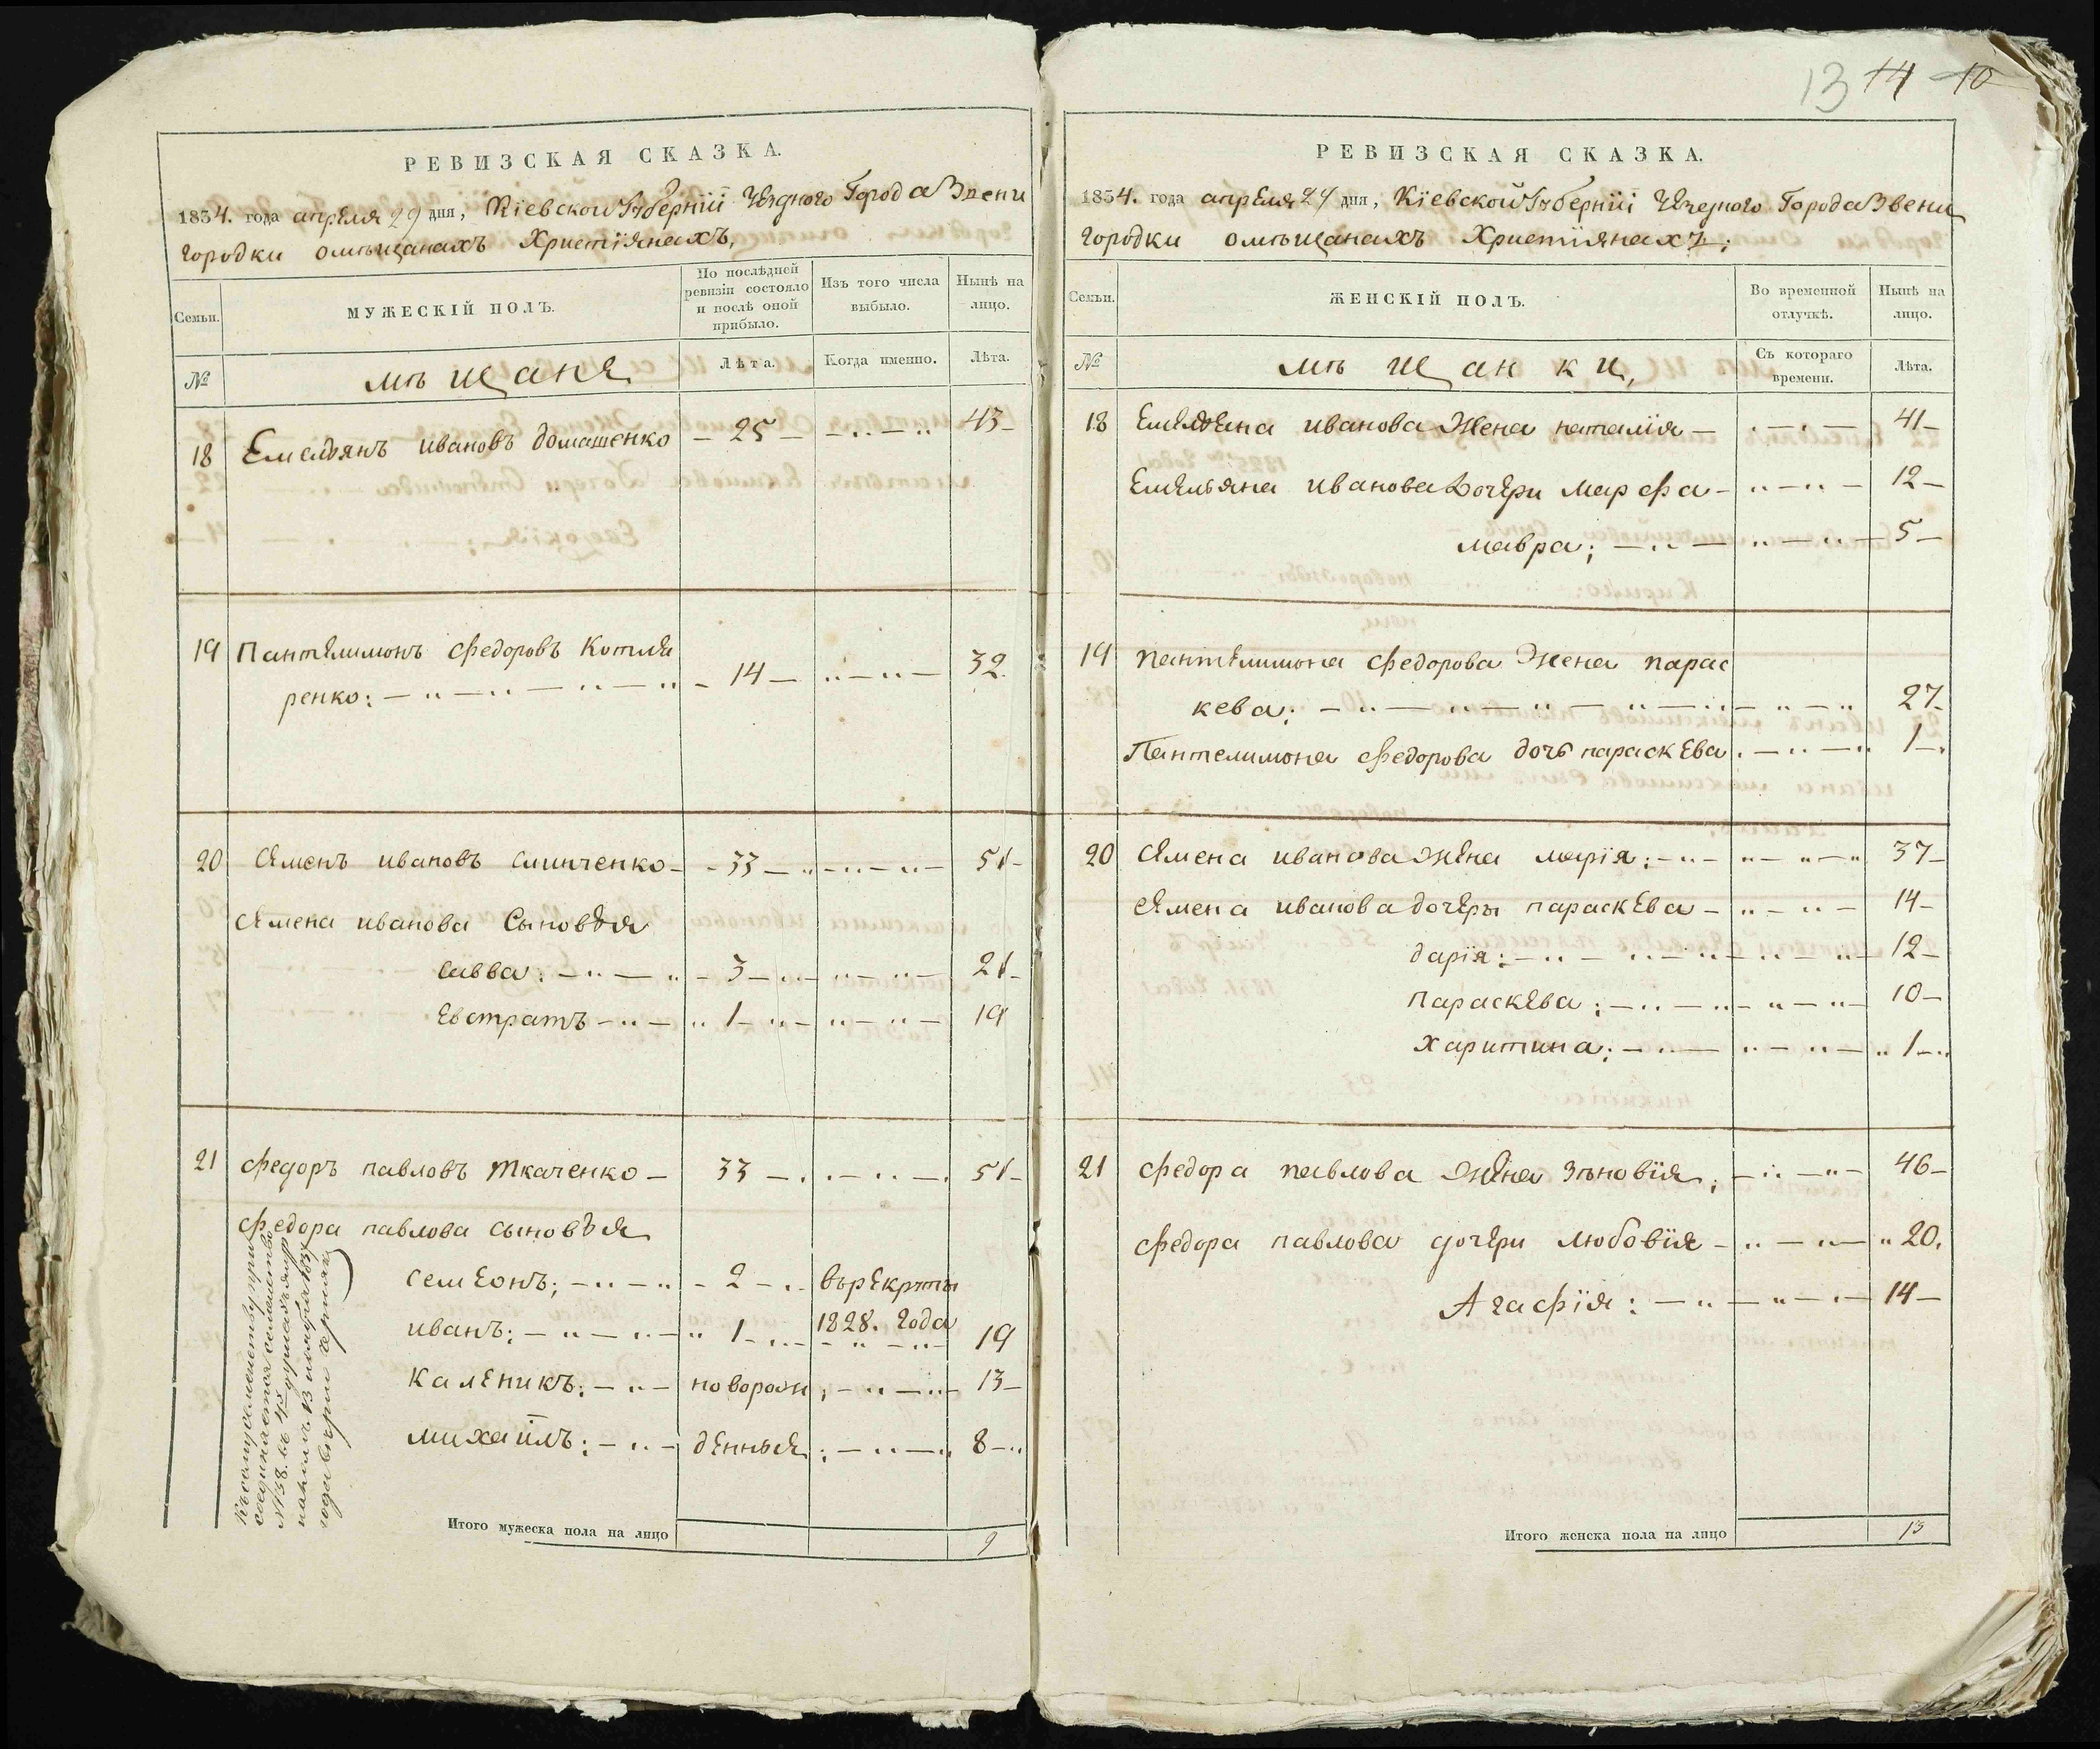 13 14 10
РЕВИЗСКАЯ СКАЗКА.
1834. года апреля 29 дня, Кіевской Губерніи Уезднаго Города Звени
городки омѣщанахъ Христіянахъ,
Семьи.
МУЖЕСКІЙ ПОЛЪ.
По послѣдней ревизіи состояло и послѣ оной прибыло.
Изъ того числа выбыло.
Нынѣ на лицо.
№
мѣщане
Лѣта.
Когда именно.
Лѣта.
18 Емельянъ ивановъ домашенко — 25 — 43 —
19 Пантелимонъ Федоровъ Котля
ренко: — 14 — 32.
20 Семенъ ивановъ слинченко — 33 — 51 —
Семена иванова Сыновья
савва: — 3 — 21 —
Евстратъ — 1 — 19
21 Федоръ павловъ Ткаченко — 33 — 51 —
Федора павлова сыновья
семеонъ; — 2 — врекруты
1828. года
иванъ: — 1 — 19
каленикъ: — новорож 13 —
михаилъ: — денные; — 8 —
Къ сему семейству при
соединяется семейство
Итого мужеска пола на лицо 9
РЕВИЗСКАЯ СКАЗКА.
1834. года апреля 29 дня, Кіевской Губерніи Уезднаго Города Звени
городки омѣщанахъ Христіянахъ;
Семьи.
ЖЕНСКІЙ ПОЛЪ.
Во временной отлучкѣ.
Нынѣ на лицо.
№
мѣщанки,
Съ котораго времени.
Лѣта.
18 Емельяна иванова Жена наталія — 41 —
Емельяна иванова дочери Марфа — 12 —
мавра; — 5 —
19 пантелимона Федорова Жена парас
кева: — 27 —
Пантелимона Федорова дочь параскева 1 —
20 Семена иванова жена марія: — 37 —
Семена иванова дочеры параскева — 14 —
дарія: — 12 —
параскева; — 10 —
харитина; — 1 —
21 Федора павлова жена Зѣновія; — 46 —
Федора павлова дочери любовія — 20.
Агафія: — 14 —
Итого женска пола на лицо 13